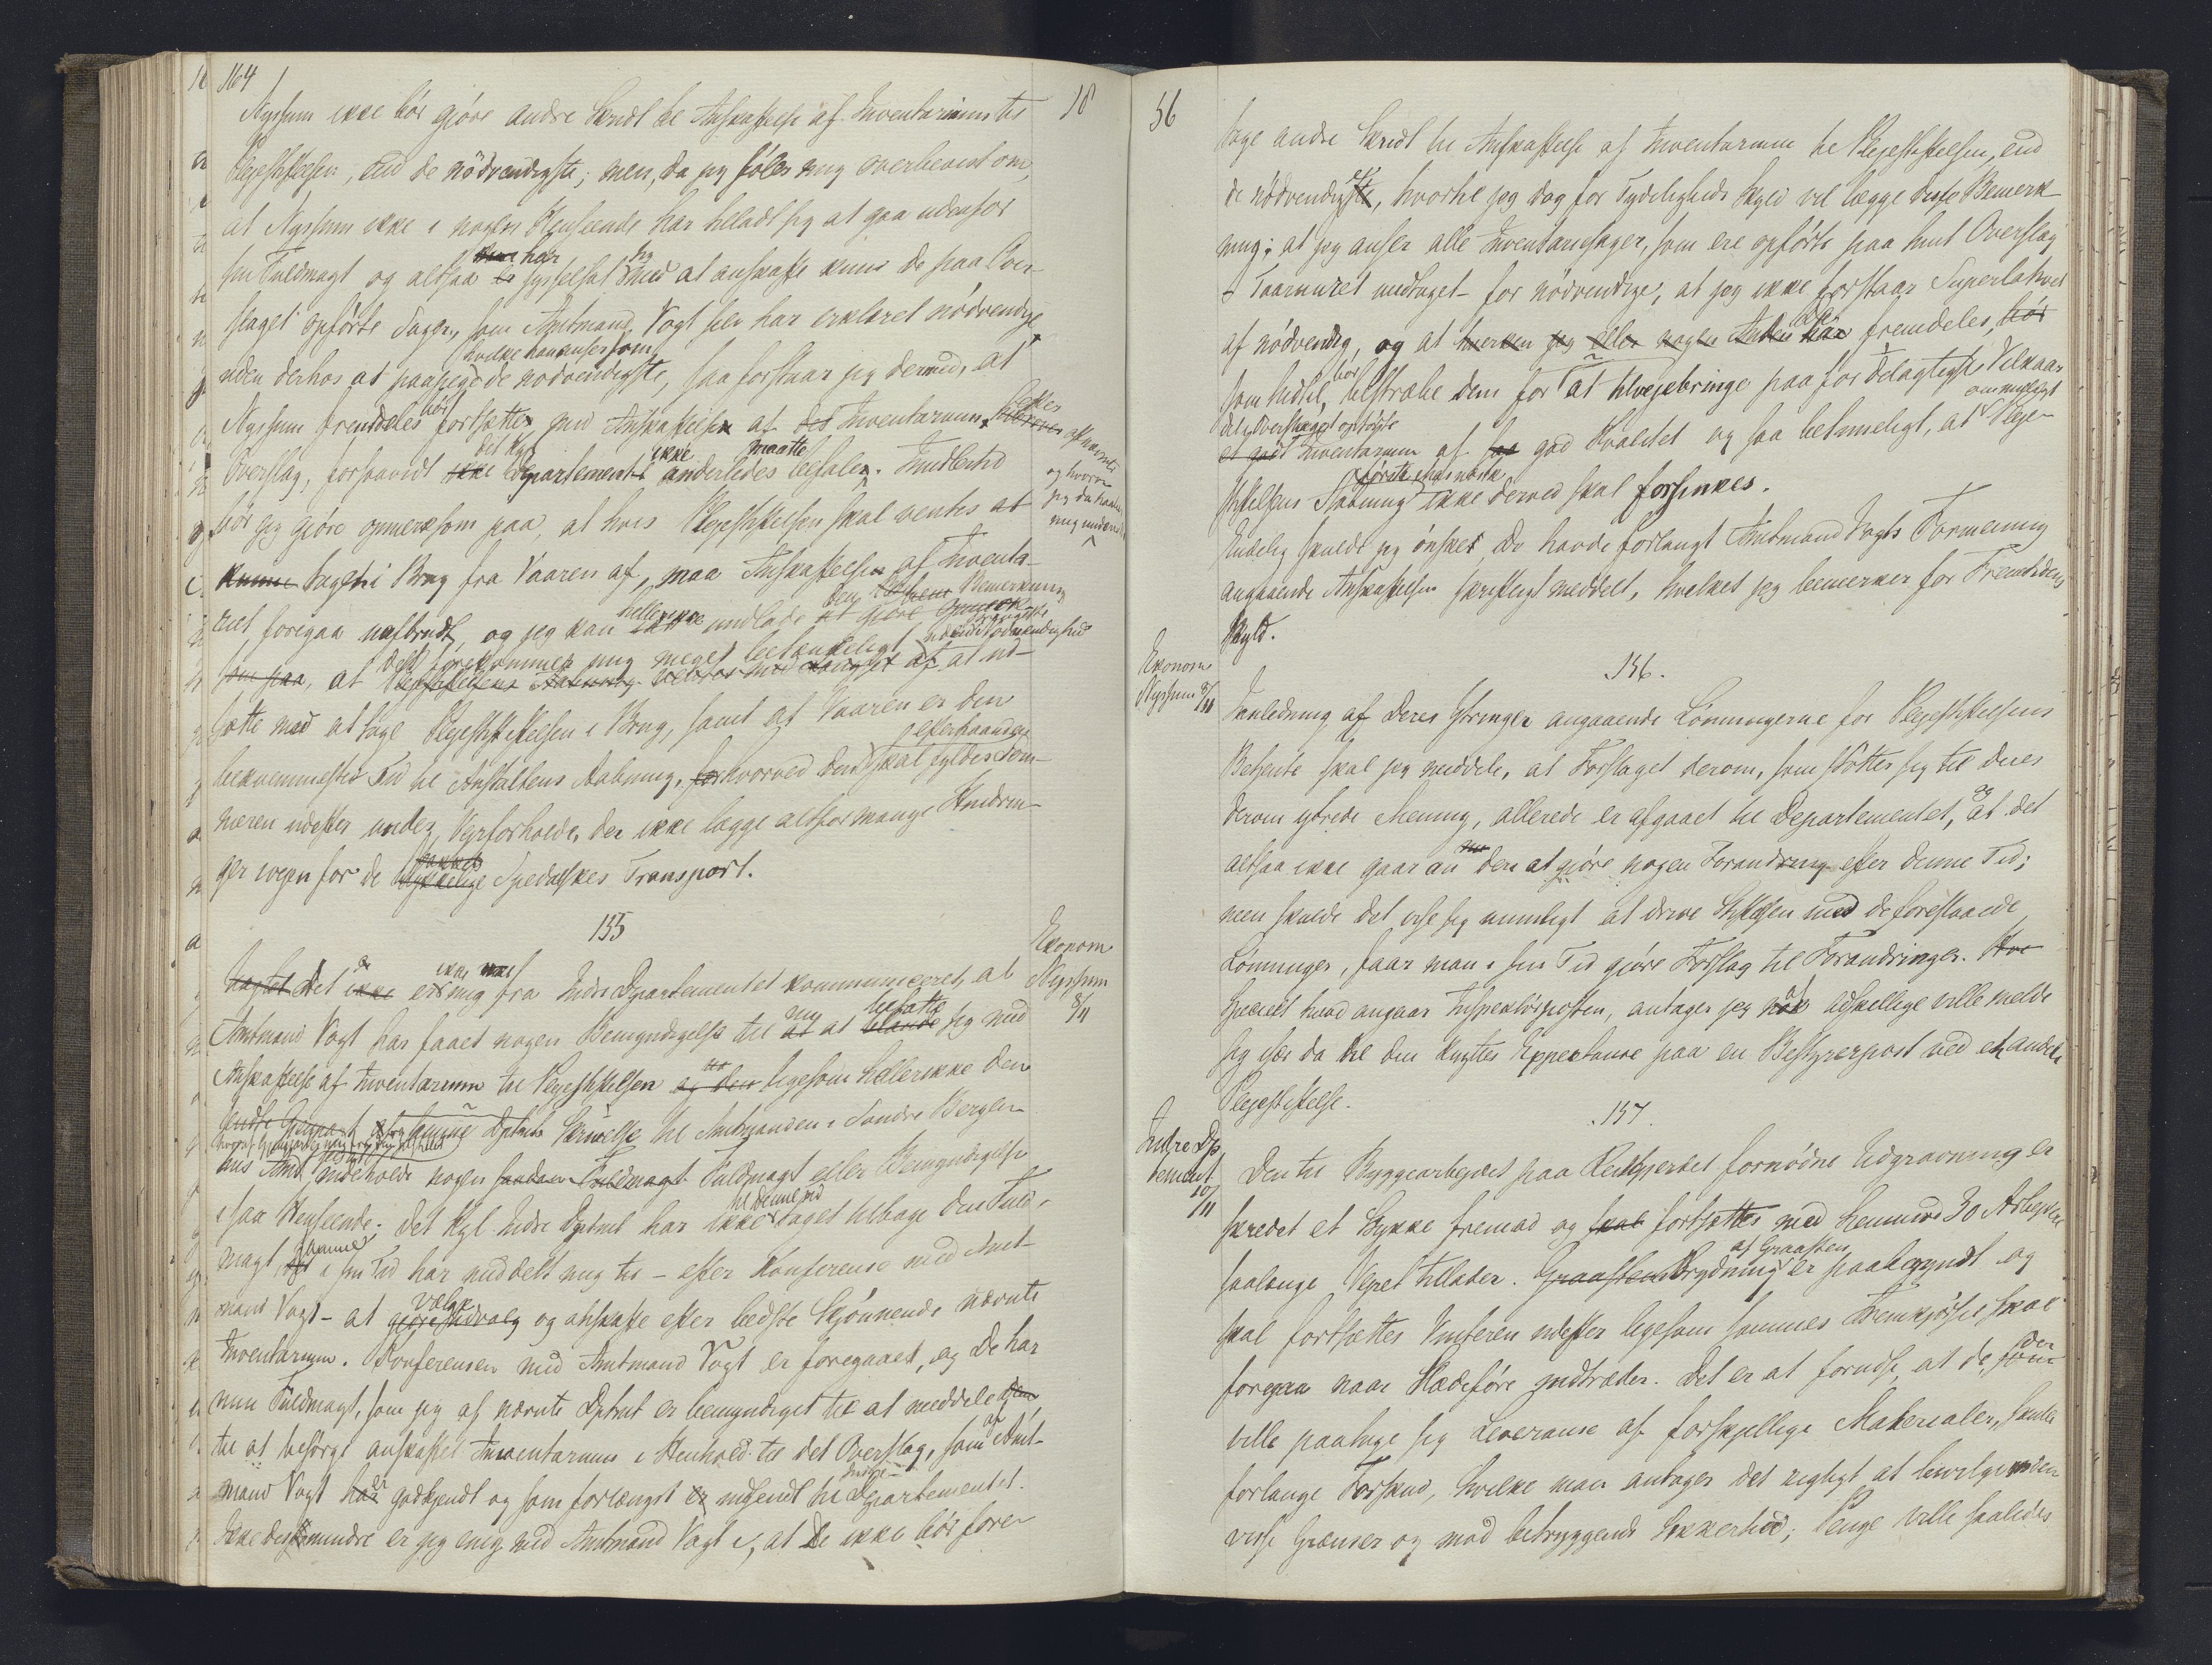 164
Nyssum ikke bör gjöre andre Skridt til Anskaffelse af Inventarium til
Plejestiftelsen, end de nödvendigste; men, da jeg föler mig overbeviist om,
at Nyssum ikke i nogen Henseende har tilladt sig at gaa udenfor
har sig
sin Fuldmagt og altsaa sysselsat med at anskaffe kuns de paa Over-
slaget opförte Sager, som Amtmand Vogt selv har erklæret nödvendige
hvilke han anser som
uden derhos at paapege de nödvendigste, saa forstaar jeg dermed, at
bör efter
Nyssum fremdeles fortsætter med Anskaffelsen af det Inventarium,
det Kgl ikke maatte
Overslag, forsaavidt ikke Departementet anderledes befaler. Imidlertid
og hvoro
jeg da
bör jeg gjöre opmerksom paa, at hvis Plejestiftelsen skal ventes at
kunne tages i Brug fra Vaaren af, maa Anskaffelsen af Inventa-
den Bemerkning
riet foregaa uafbrudt, og jeg kan hellerikke undlade at gjöre opmerk
som paa, at det forekommer mig meget betænkeligt
Plejestiftelsens at ud-
sætte med at tage Plejestiftelsen i Brug, samt at Vaaren er den
efterhaanden
bekvemmeste Tid til Anstaltens Aabning, hvorved den skal fyldes Som-
meren udefter under Vejrforholde, der ikke lægge altfor mange Hindrin-
ger ivejen for de Spedalskes Transport.
155
Ekonom
Nyssum
8/11
Det er ikke mig fra Indre Departementet kommuniceret, at
mig befatte
Amtmand Vogt har faaet nogen Bemyndigelse til at blande sig med
Anskaffelse af Inventarium til Plejestiftelsen og den ligesom hellerikke den
Dptmts Skrivelse til Amtmanden i Söndre Bergen-
hus Amt indeholde nogen saadan Fuldmagt Fuldmagt eller Bemyndigelse
til denne Tid
i saa Henseende. Det Kgl. Indre Dptmt har ikke taget tilbage den Fuld-
magt, i sin Tid har meddelt mig til – efter Konferense med Amt-
vælge
mand Vogt – at gjöre Udvalg og anskaffe efter bedste Skjönnende nævnte
Inventarium. Konferensen med Amtmand Vogt er foregaaet, og De har
min Fuldmagt, som jeg af nævnte Dptmt er bemyndiget til at meddele Dem,
til at besörge anskaffet Inventarium i Henhold til det Overslag, som af Amt-
Indre
mand Vogt har godkjendt og som forlængst er indsendt til Departementet.
Ikke destomindre er jeg enig med Amtmand Vogt i, at De ikke bör fore-
18
56
tage andre Skridt til Anskaffelse af Inventarium til Plejestiftelsen, end
de nödvendigste, hvortil jeg dog for Tydeligheds Skyld vil lægge denne Bemerk-
ning: at jeg anser alle Inventariesager, som ere opförte paa hint Overslag
– Taarnuret undtaget – for nödvendige, at jeg ikke forstaar Superlativet
af nödvendig, og at hverken jeg eller nogen Anden har fremdeles, bör
som hidtil, bör bestræbe dem for at tilvejebringe paa fordelagtigste Vilkaar
Inventarium af god Kvalitet og saa betimeligt, at Pleje-
stiftelsens Aabning ikke derved skal forsinkes.
Endelig skulde jeg önsket De havde forlangt Amtmand Vogts Formening
angaaende Anskaffelsen skriftligt meddelt, hvilket jeg bemerker for Fremtidens
Skyld.
156.
Ekonom
Nyssum 8/11
I Anledning af Deres Ytringer angaaende Lönningerne for Plejestiftelsens
Betjente skal jeg meddele, at Forslaget derom, som stötter sig til Deres
derom ytrede Mening, allerede er afgaaet til Departementet, og at det
altsaa ikke gaar an den at gjöre nogen Forandring efter denne Tid;
men skulde det vise sig umuligt at drive Stiftelsen med de foreslaaede
Lönninger, faar man i sin Tid gjöre Forslag til Forandringer. Hva
Specielt hvad angaar Inspektörposten, antager jeg nok adskillige ville melde
sig især da til den knyttes Expektanse paa en Bestyrerpost ved et andet
Plejestiftelse.
157.
Indre Dp
tement
10/11
Den til Byggearbejdet paa Reitgjerdet fornödne Udgravning er
skredet et Stykke fremad og skal fortsættes med henimod 30 Arbejdere
af Graasten
saalænge Vejret tillader. Graasten Brydning er paabegyndt og
skal fortsættes Vinteren udefter ligesom sammes Fremkjörsel skal
foregaa naar Slædeföre indtræder. Det er at forudse, at de, der
ville paatage sig Leverance af forskjellige Materialer, skulle
forlange Forskud, hvilke man antager det rigtigt at bevilge inden
visse Grænser og mod betryggende Sikkerhed; Penge ville saaledes